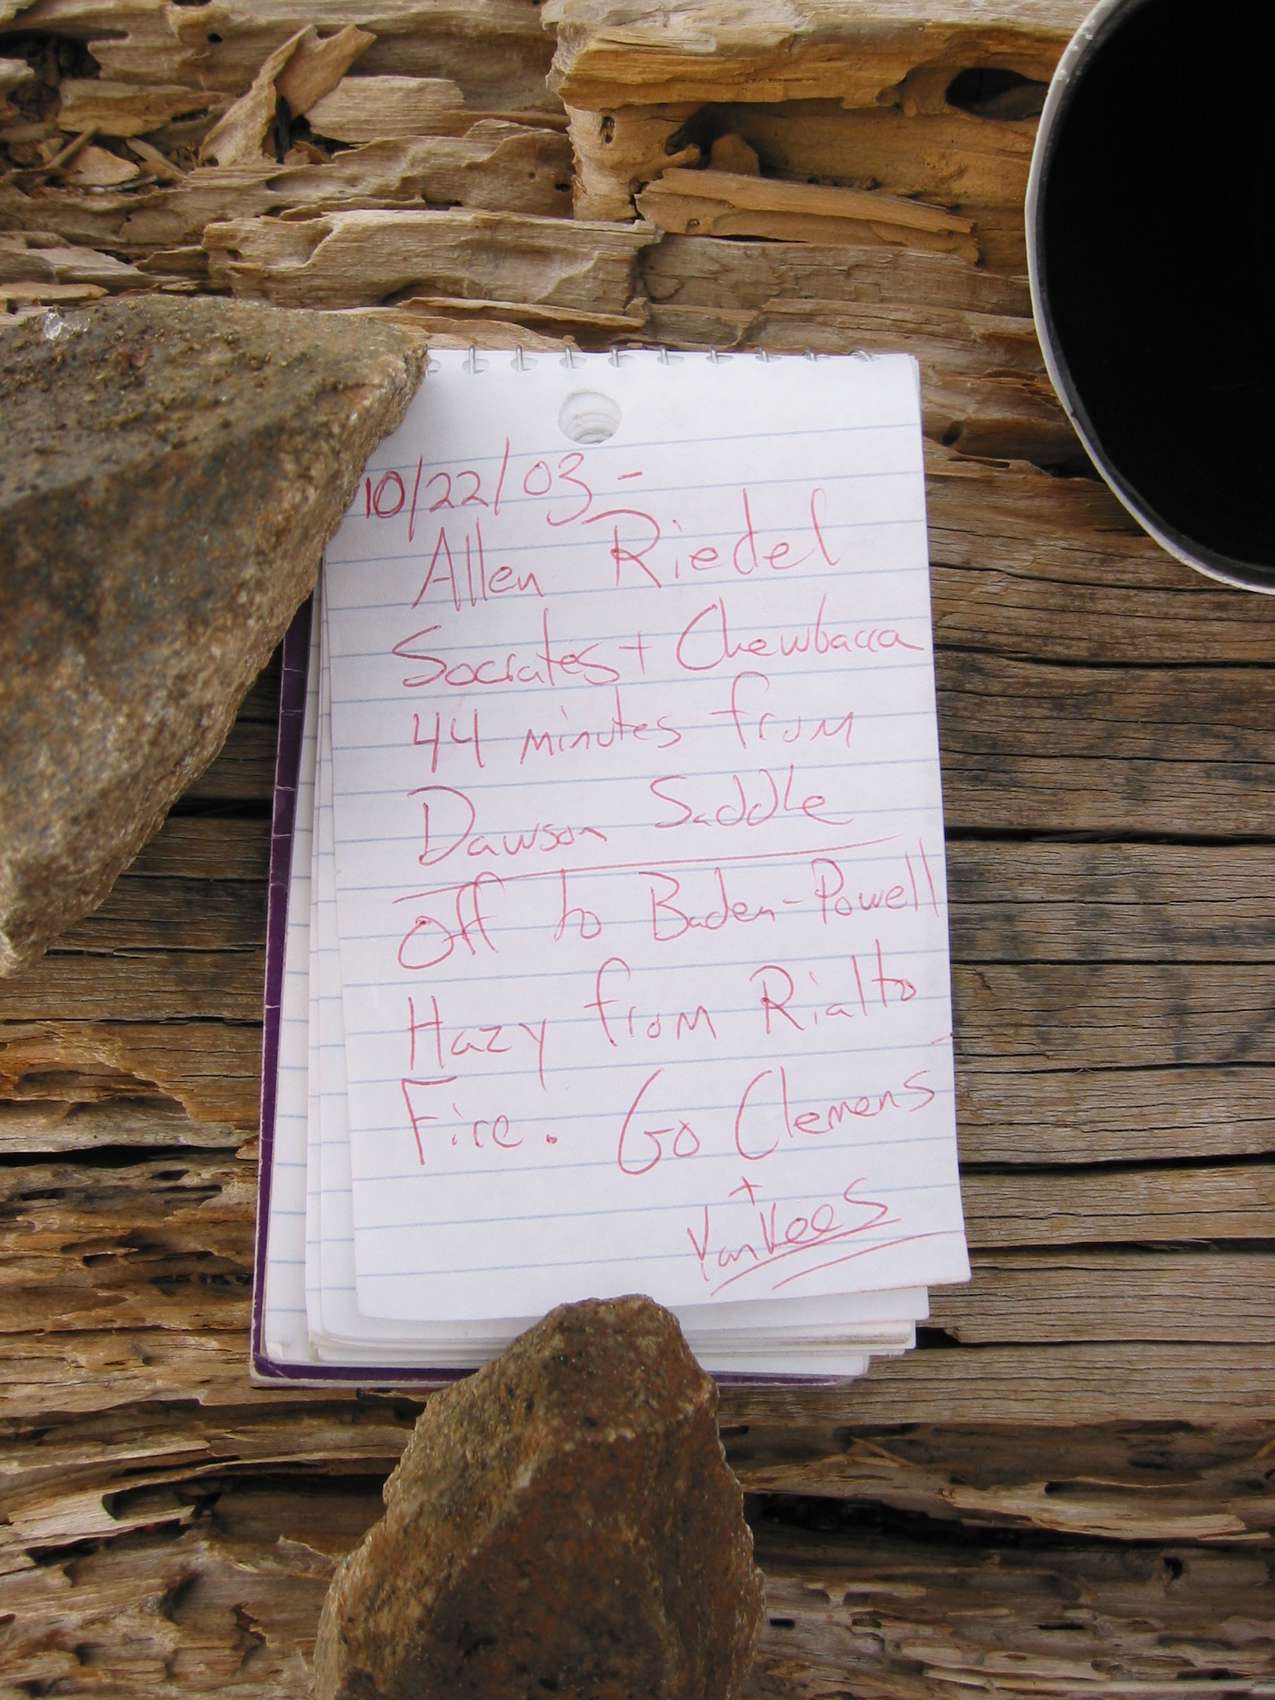 10/22/03-
Allen Riedel
Socrates + Chewbacca
44 minutes from
Dawson Saddle
off to Baden-Powell
Hazy from Rialto
Fire. Go Clemens
+
Yankees